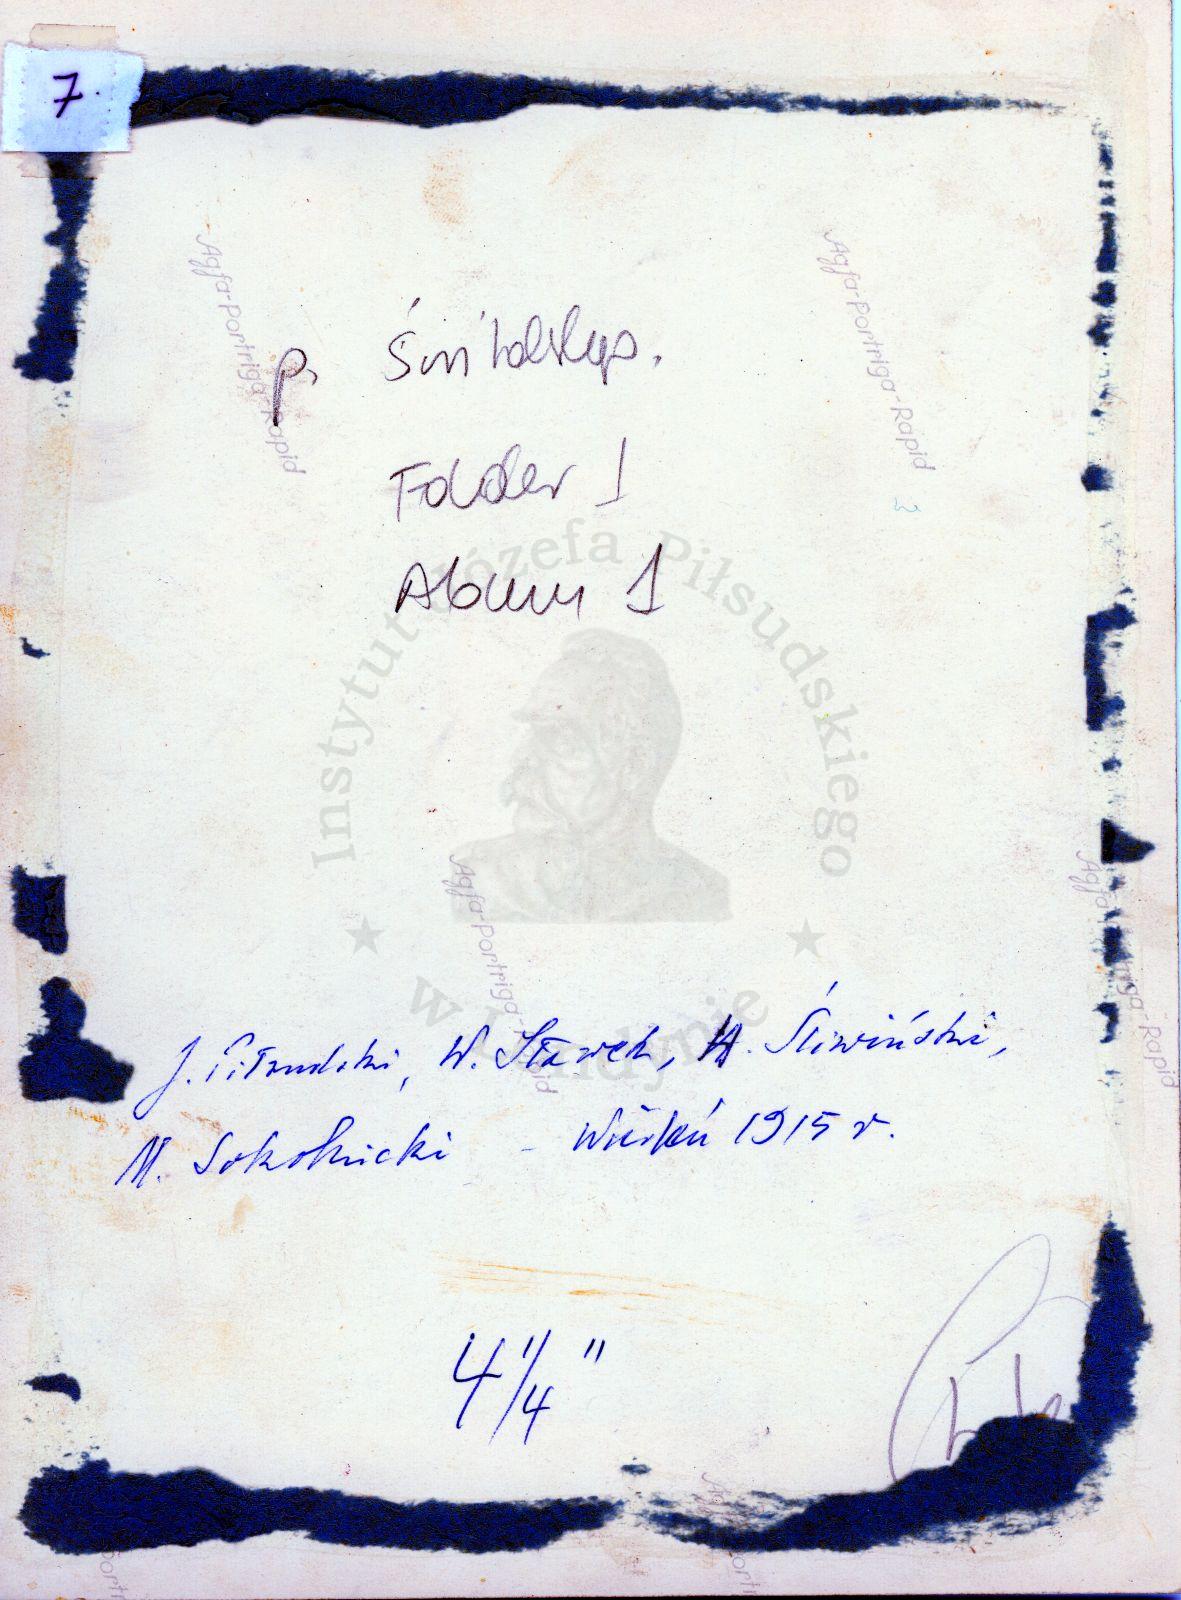 7.
p. Świtalskego.
Folder 1
Album 1
Instytut Józefa Piłsudskiego
w Londynie
Agfa-Portriga-Rapid
Agfa-Portriga-Rapid
3
Agfa-Portriga-Rapid
Agfa-Portriga-Rapid
J. Piłsudski, W. Sławek, A. Śliwiński,
M. Sokolnicki - 1915 r.
4 1/4 "